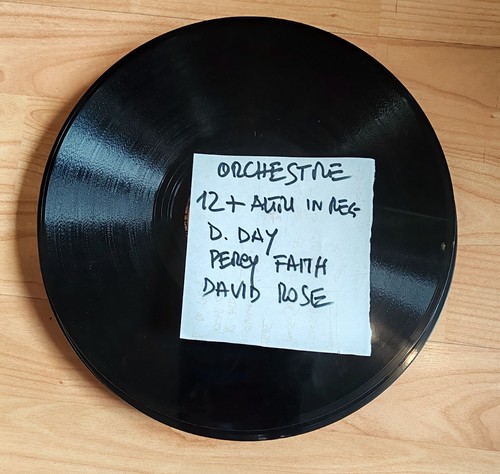 ORCHESTRE
12+ ALTRI IN REG
D. DAY
PERCY FAITH
DAVID ROSE